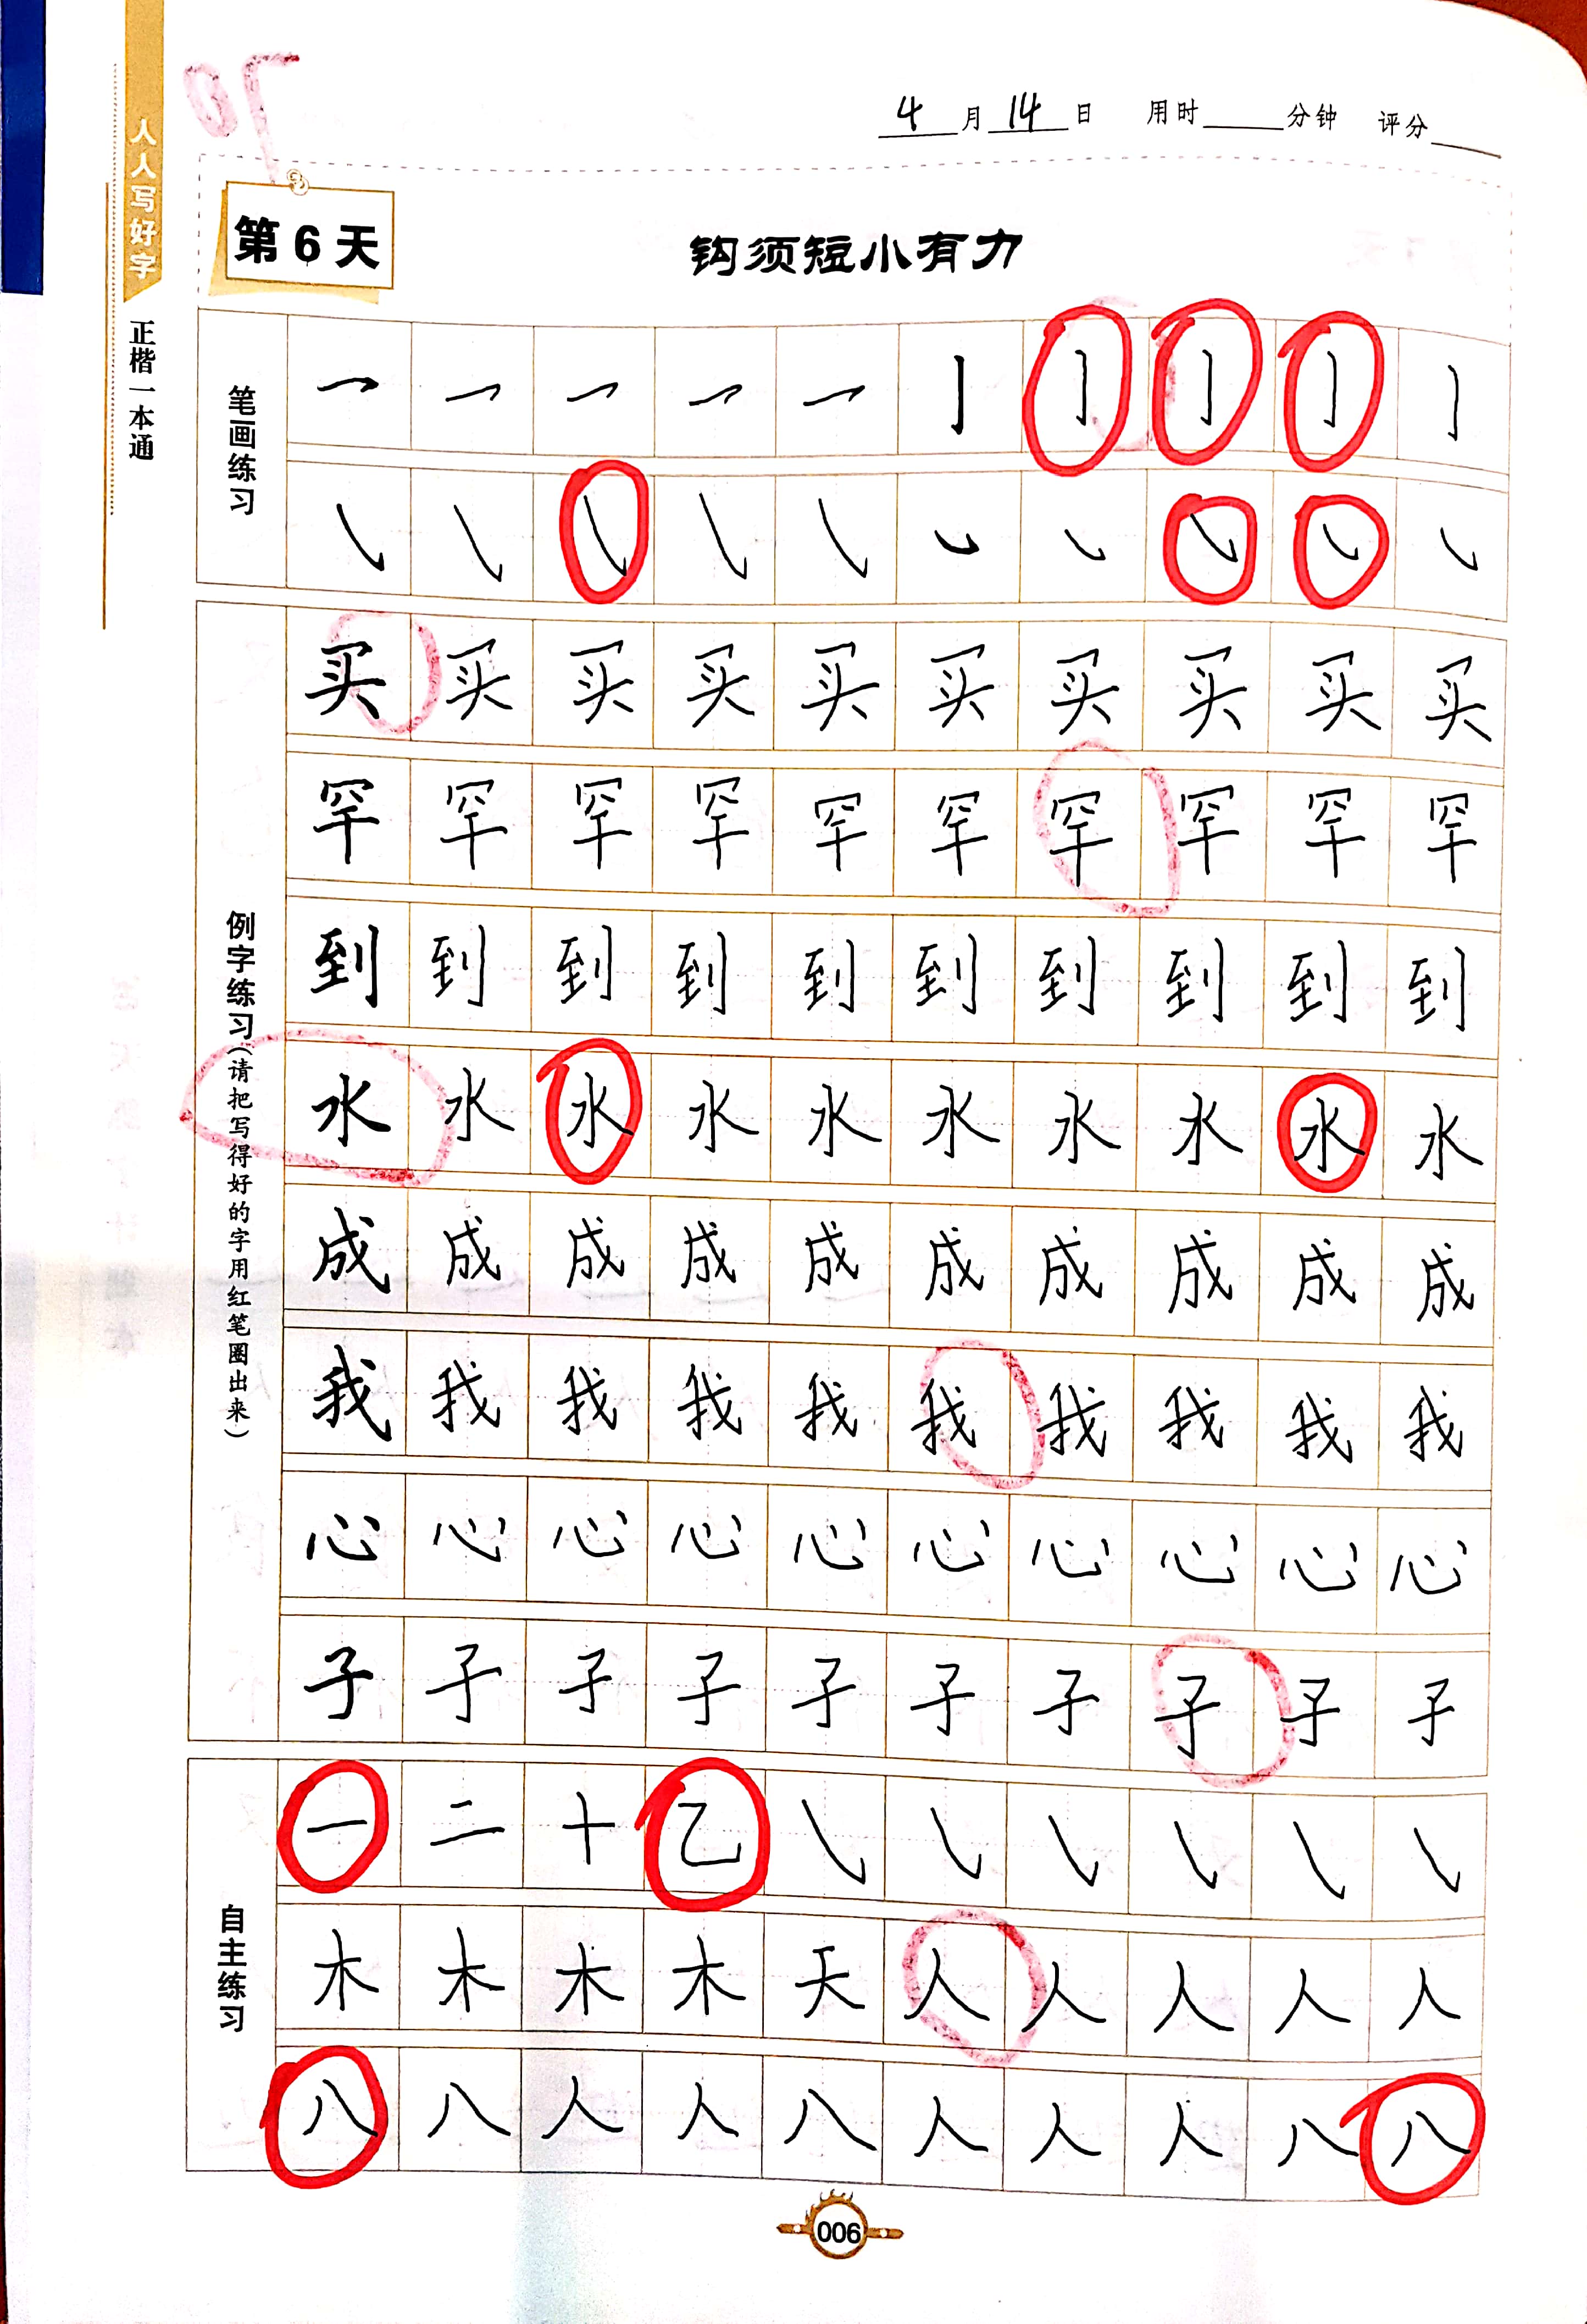 人人写好字
正楷一本通
4月14日 用时 分钟 评分
第6天
钩须短小有力
笔画练习
例字练习(请把写得好的字用红笔圈出来)
买买买买买买买买买买
罕罕罕罕罕罕罕罕罕罕
到到到到到到到到到到
水水水水水水水水水水
成成成成成成成成成成
我我我我我我我我我我
心心心心心心心心心心
子子子子子子子子子子
自主练习
一二十乙
木木木木天人人人人人
八八人人八人人人八八
006